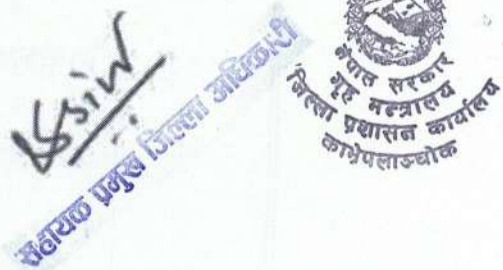 सहायक प्रमुख जिल्ला अधिकारी
नेपाल सरकार
गृह मन्त्रालय
जिल्ला प्रशासन कार्यालय
काभ्रेपलाञ्चोक